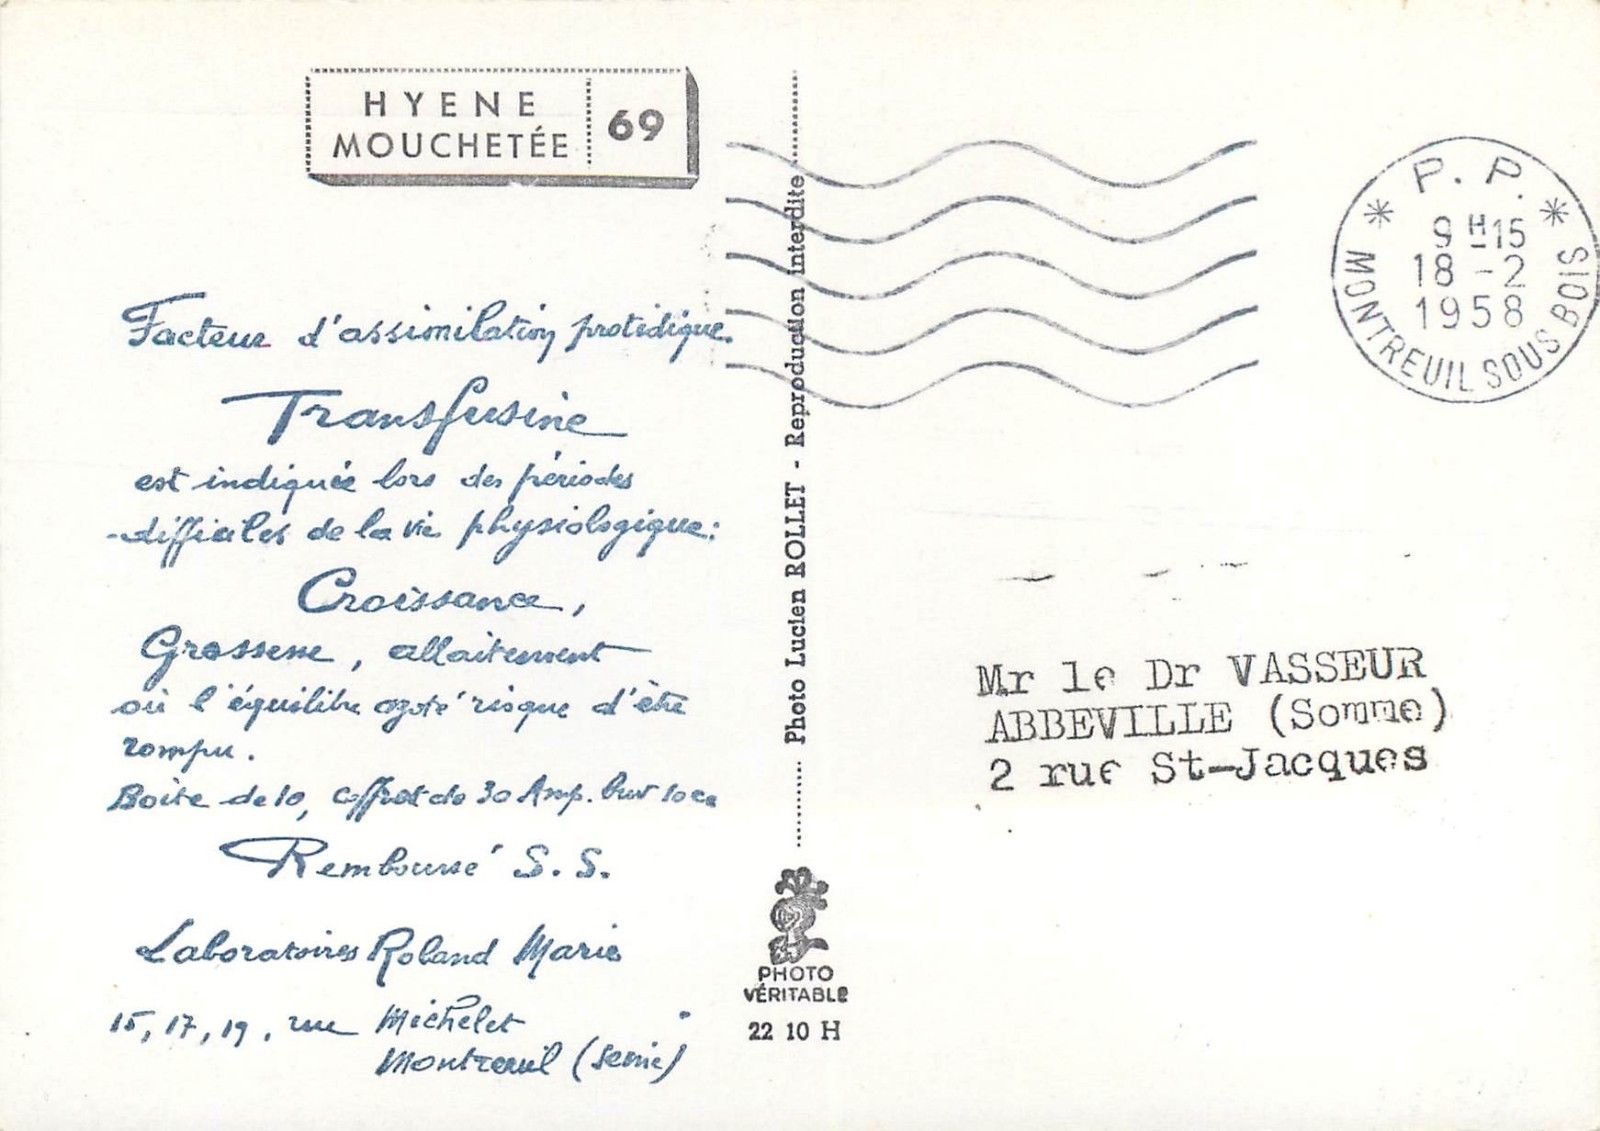 HYENE
MOUCHETÉE
69
Facteur d'assimilation protidique.
Transfusine
est indiquée lors des périodes
difficiles de la vie physiologique:
Croissance,
Grossesse, allaitement
où l'équilibre azoté risque d'être
rompu.
Boite de 10, coffret de 30 Amp. buv 10cc
Remboursé S.S.
Laboratoires Roland Marie
15, 17, 19, rue Michelet
Montreuil (Seine)
Photo Lucien ROLLET - Reproduction interdite
PHOTO
VÉRITABLE
22 10 H
P. P.
9H15
18-2
1958
* MONTREUIL SOUS BOIS *
Mr le Dr VASSEUR
ABBEVILLE (Somme)
2 rue St-Jacques